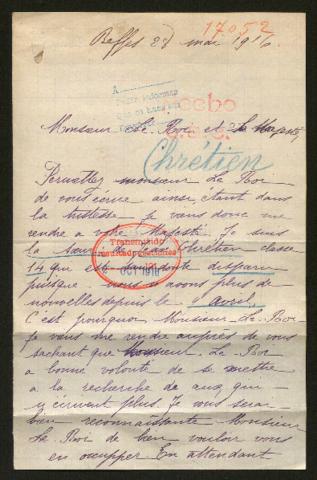 17052
Beffes 28 mai 1916
Recibo
Monsieur Le Roi et Sa Majesté
Chrétien
Permettez monsieur Le Roi
de vous écrire ainsi, étant dans
la tristesse je vous donc me
rendre a votre Majesté Je suis
la sœur de Chrétien classe
14 que est sans doute disparu
puisque nous n avons plus de
nouvelles depuis le 9 avril
C'est pourquoi Monsieur Le Roi
je vous me rendre auprès de vous
sachant que Monsieur Le Roi
a bonne volonté de se mettre
a la recherche de ceux qui
n'écrivent plus Je vous serai
bien reconnaissante Monsieur
Le Roi de bien vouloir vous
en occupper En attendant
Transmitido
resultado gestiones
OCT 1916